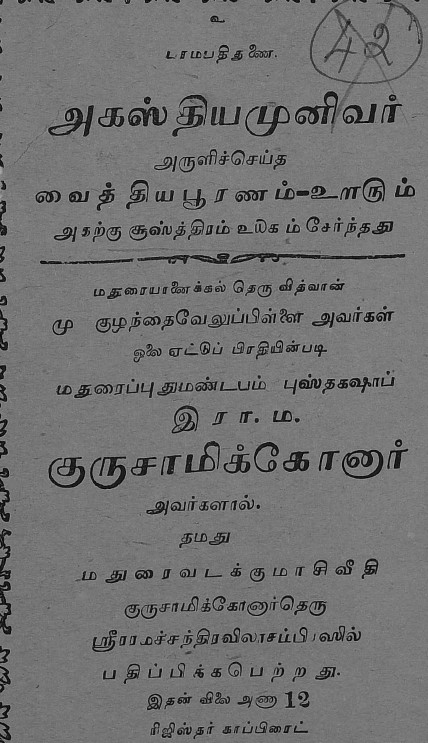 உ
42
அகஸ்தியமுனிவர்
அருளிச்செய்த
வைத்தியபூரணம்-உளரும்
அதற்கு சூஸ்த்திரம் உரைம்சேர்ந்தது
மதுரையானைக்கல் தெரு வித்வான்
மு குழந்தைவேலுப்பிள்ளை அவர்கள்
ஓலை ஏட்டுப் பிரதியின்படி
மதுரைப்புதுமண்டபம் புஸ்தகஷாப்
இ ரா. ம.
குருசாமிக்கோனார்
அவர்களால்.
தமது
மதுரைவடக்குமாசிவீதி
குருசாமிக்கோனார்தெரு
ஸ்ரீராமச்சந்திரவிலாசம்பிரஸில்
பதிப்பிக்கபெற்றது.
இதன் விலை அணா 12
ரிஜிஸ்தர் காப்பிரைட்